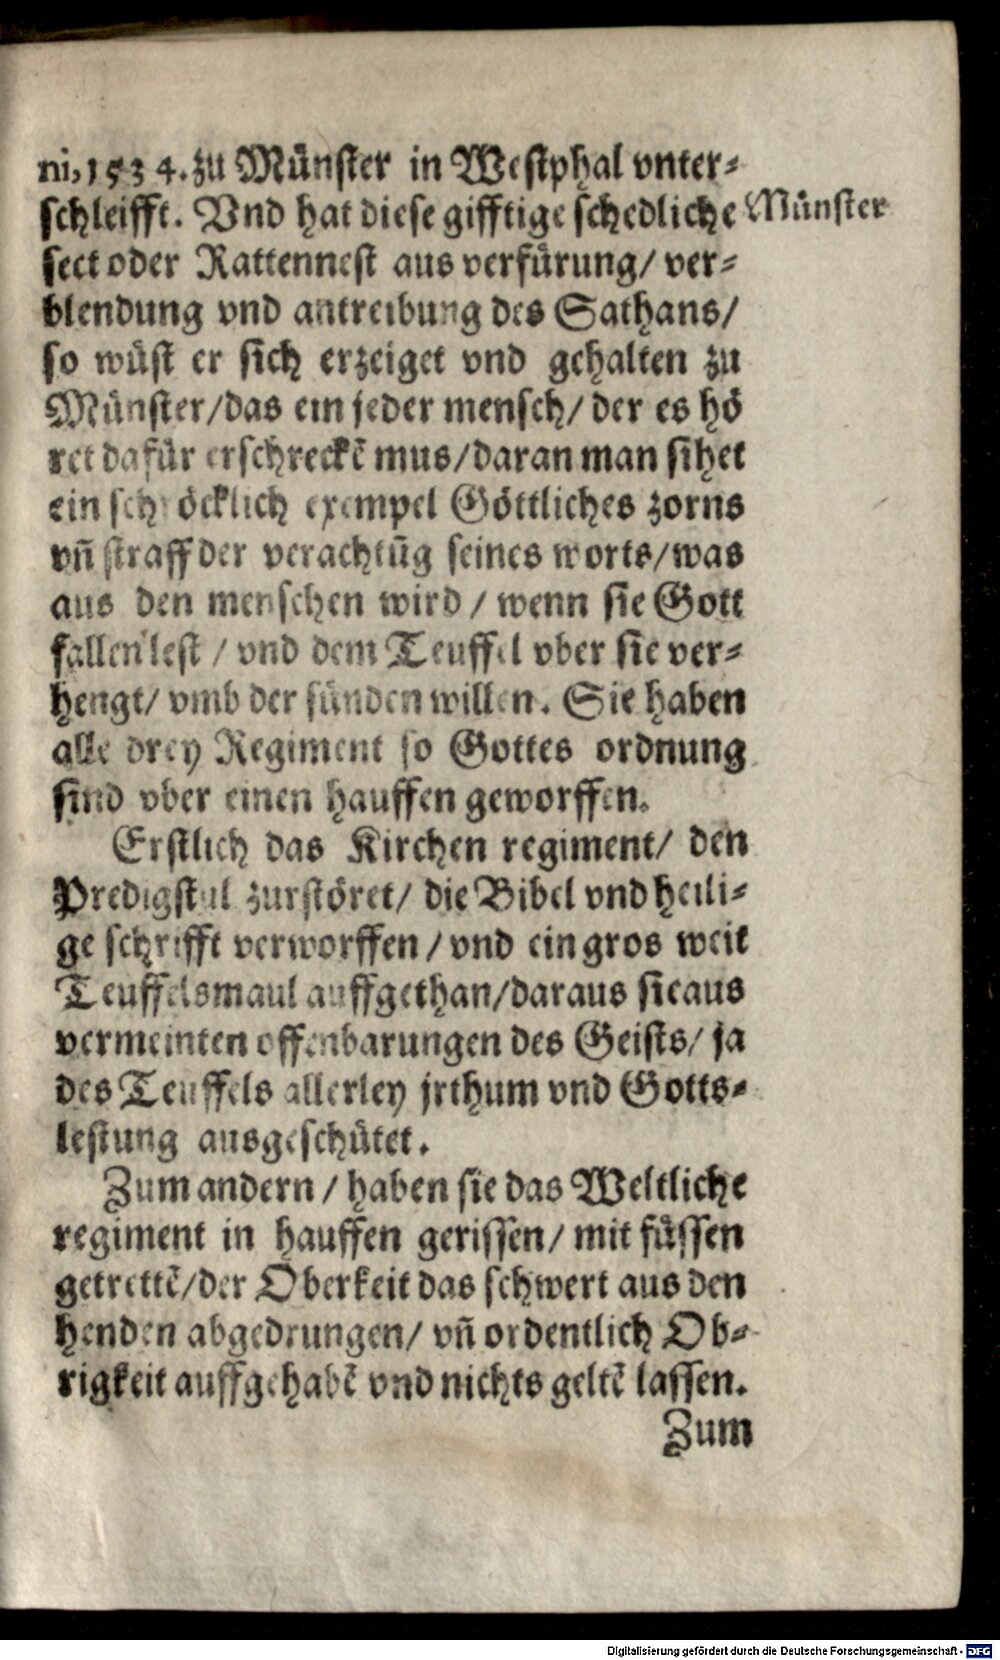 ni, 1534. zu Münster in Westphal vnter-
schleifft. Vnd hat diese gifftige schedliche
Münster
sect oder Rattennest aus verfürung/ ver-
blendung vnd antreibung des Sathans/
so wüst er sich erzeiget vnd gehalten zu
Münster/das ein jeder mensch/ der es hö
ret dafür erschreckẽ mus/daran man sihet
ein schröcklich exempel Göttliches zorns
vñ straff der verachtũg seines worts/was
aus den menschen wird / wenn sie Gott
fallen lest / vnd dem Teuffel vber sie ver-
hengt/ vmb der sünden willen. Sie haben
alle drey Regiment so Gottes ordnung
sind vber einen hauffen geworffen.
Erstlich das Kirchen regiment/ den
Predigstul zurstöret/ die Bibel vnd heili-
ge schrifft verworffen / vnd ein gros weit
Teuffelsmaul auffgethan/daraus sie aus
vermeinten offenbarungen des Geists/ ja
des Teuffels allerley jrthum vnd Gotts-
lestung ausgeschütet.
Zum andern / haben sie das Weltliche
regiment in hauffen gerissen/ mit füssen
getrettẽ/der Oberkeit das schwert aus den
henden abgedrungen/ vñ ordentlich Ob-
rigkeit auffgehabẽ vnd nichts geltẽ lassen.
Zum
Digitalisierung gefördert durch die Deutsche Forschungsgemeinschaft - DFG